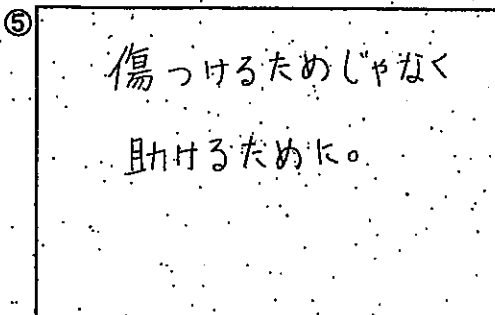 ⑤
傷つけるためじゃなく
助けるために。